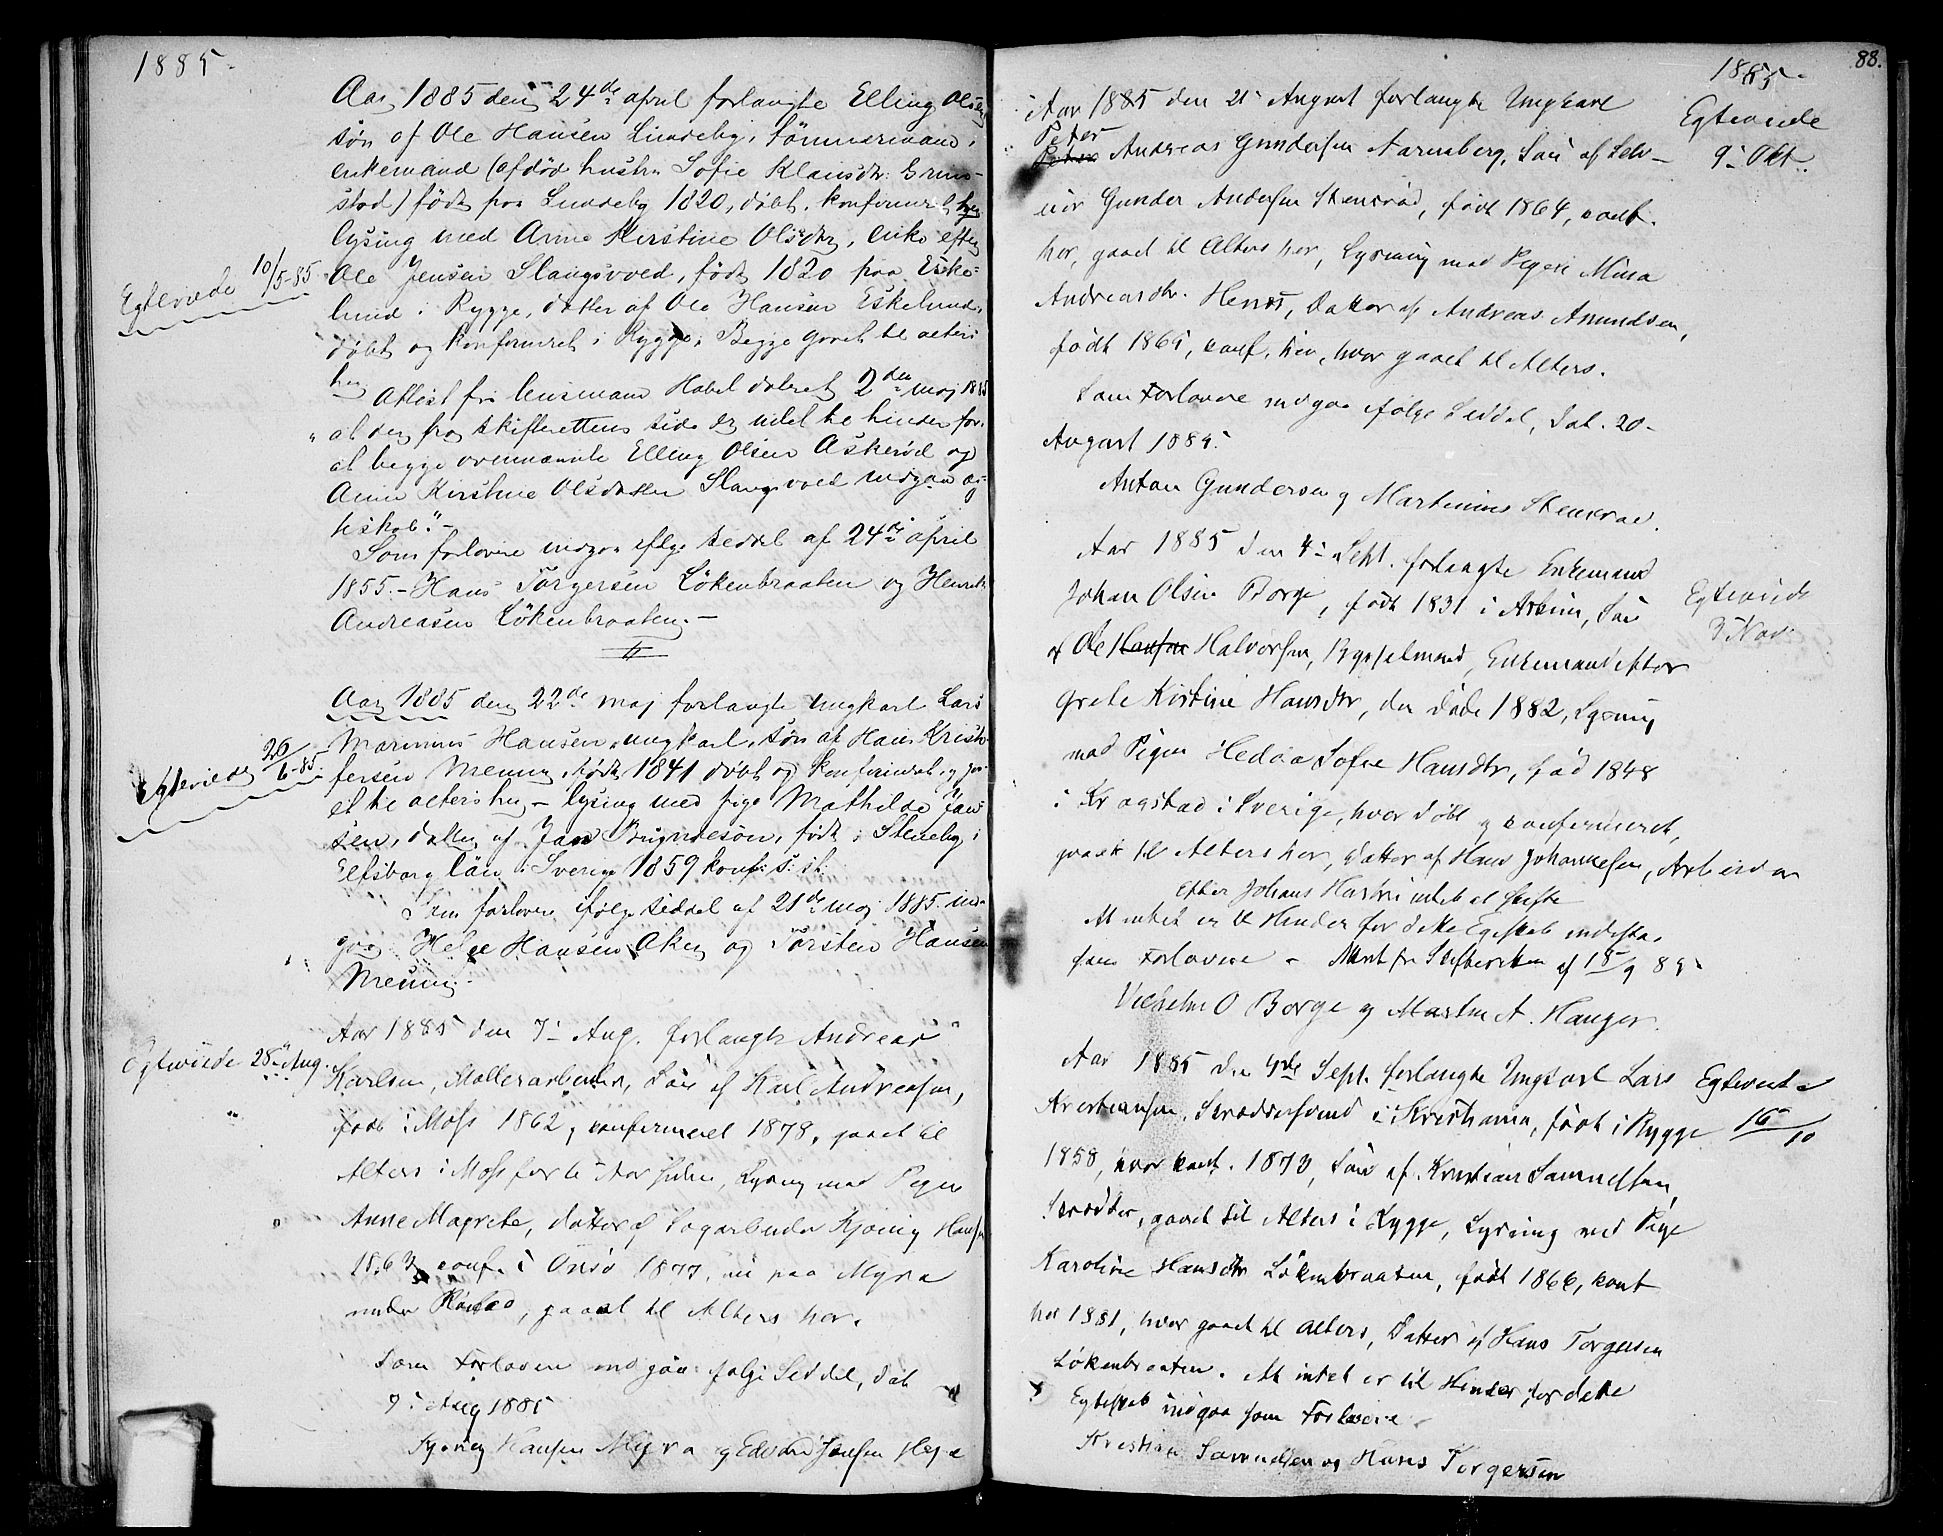 1885.
Aar 1885 den 24de april forlangte Elling Olsen
søn af Ole Hansen Lundeby, Tømmermand,
enkemand (afdød hustru Sofie Klausdtr.
stad) født paa Lundeby 1820, døbt, konfirmeret her
lysing med Anne Kirstine Olsdtr, enke efter
Egteviede 10/5-85
Ole Jensen Slangsvold, født 1820 paa Eske-
lund i Rygge, datter af Ole Hansen Eskelund,
døbt og konfirmeret i Rygge; Begge gaaet til alters
her
Attest fra lensmand Habel dateret 2den maj 1885
"at der fra skifterettens side er intet til hinder for,
at begge ovennævnte Elling Olsen Askerød og
Anne Kirstine Olsdatter Slangsvold indgaa æg-
teskab."-
Som forlovere indgaa ifølge seddel af 24de april
1855.- Hans Torgersen Løkenbraaten og Henrik
Andreasen Løkenbraaten.-
Aar 1885 den 22de maj forlangte ungkarl Lars
Marinius Hansen, ungkarl, søn af Hans Krist-
Egteviede 26/6-85.
fersen Menny, født 1841 døbt og konfirmeret, og gaa-
et til alters her - lysing med pige Mathilde Jan-
sen, datter af Jan Brynnesøn, født i Steneby i
Elfsborg län i Sverige 1859 konf: s: st:
Som forlovere ifølge seddel af 21de maj 1885 ind-
gaa: Helge Hansen Aker og Torsten Hansen
Menny.
Aar 1885 den 7- Aug. forlangte Andreas
Egteviede 28- Aug.
Karlsen, Møllerarbeider, Søn af Karl Andreasen,
født i Moss 1862, konfirmeret 1878, gaaet til
Alters i Moss for 6 Aar siden, Lysning med Pigen
Anne Magrete, datter af Sagarbeider Kjønig Hansen
1863, conf. i Onsø 1877, nu paa Myra
under Røstad, gaaet til Alters her.
Som Forlovere indgaa ifølge Seddel, dat
9- Aug 1885
Hansen Myra og Edvard Jensen
88.
1885.
Aar 1885 den 21- August forlangte Ungkarl
Egteviede
9- Okt.
Peter
Andreas Gundersen Aarnsberg, Søn af Selv-
eier Gunder Andersen Stensrød, født 1864, conf.
her, gaaet til Alters her, Lysning med Pigen Mina
Andreasdtr. Henst, Datter af Andreas Amundsen,
født 1865, conf. her, hvor gaaet til Alters.
Som Forlovere indgaa ifølge Seddel, Dat. 20-
August 1885.
Anton Gundersen og Martinius Stensrød.
Aar 1885 den 4- Sept. forlangte Enkemand
Egteviede
3 Nov.
Johan Olsen Borge, født 1831 i Askim, Søn
af Ole Hansen Halvorsen, Bygselmand, Enkemand efter
Grete Kirstine Hansdtr, der døde 1882, Lysning
med Pigen Hedda Sofie Hansdtr, født 1848
i Krogstad i Sverige, hvor døbt og konfirmeret,
gaaet til Alters her, Datter af Hans Johannesen, Arbeider
Efter Johans Hustru intet at skifte
At intet er til Hinder for dette Egteskab indestaa
som Forlovere - Attest fra Skifteretten af 18/9 85
Vilhelm O Borge og Martin A. Hauger.
Aar 1885 den 4de Sept. forlangte Ungkarl Lars
Egteviede
16/10
Kristiansen, Skræddersvend i Kristiania, født i Rygge
1858, hvor konf. 1873, Søn af Kristian Samuelsen,
Skrædder, gaaet til Alters i Rygge, Lysning med Pige
Karoline Hansdtr Løkenbraaten, født 1866, konf
her 1881, hvor gaaet til Alters, Datter af Hans Torgersen
Løkenbraaten. At intet er til Hinder for dette
Egteskab indgaa som Forlovere
Kristian Samuelsen og Hans Torgersen